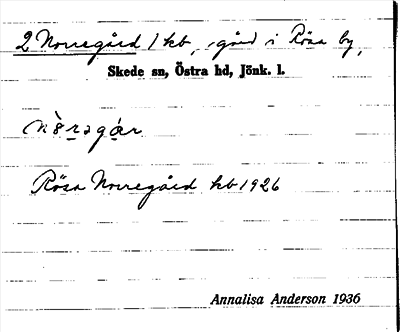 2 Norregård 1 kb, gård i Rösa by,
Skede sn, Östra hd, Jönk. l.
Rösa Norregård kb 1926
Annalisa Anderson 1936